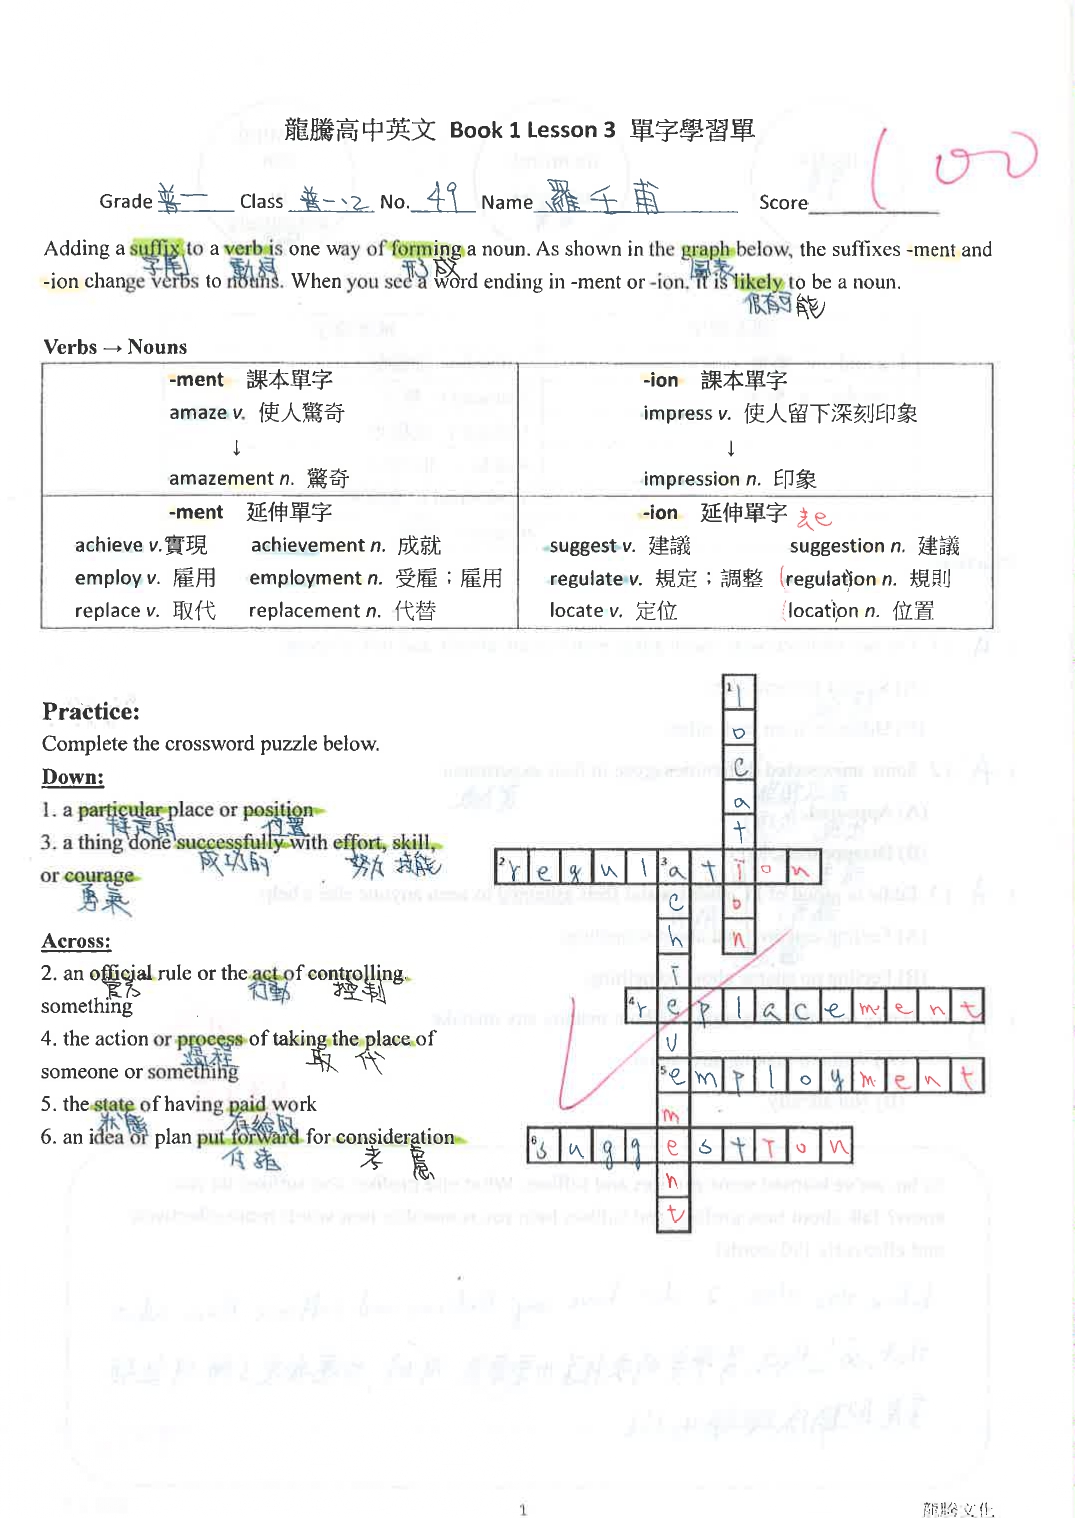 龍騰高中英文 Book 1 Lesson 3 單字學習單
100
Grade 普一 Class 普一、2 No. 49 Name 羅壬甫 Score
Adding a suffix to a verb is one way of forming a noun. As shown in the graph below, the suffixes -ment and
字尾 動詞 形成 圖表
-ion change verbs to nouns. When you see a word ending in -ment or -ion, it is likely to be a noun.
很有可能
Verbs → Nouns
-ment 課本單字
amaze v. 使人驚奇
↓
amazement n. 驚奇
-ion 課本單字
impress v. 使人留下深刻印象
↓
impression n. 印象
-ment 延伸單字
achieve v.實現 achievement n. 成就
employ v. 雇用 employment n. 受雇；雇用
replace v. 取代 replacement n. 代替
-ion 延伸單字 去e
suggest v. 建議 suggestion n. 建議
regulate v. 規定；調整 regulation n. 規則
locate v. 定位 location n. 位置
Practice:
Complete the crossword puzzle below.
Down:
1. a particular place or position
特定的 位置
3. a thing done successfully with effort, skill,
成功的 努力 技能
or courage
勇氣
Across:
2. an official rule or the act of controlling
官方 行動 控制
something
4. the action or process of taking the place of
過程 取代
someone or something
5. the state of having paid work
狀態
6. an idea or plan put forward for consideration
考慮
1 location
2 regulation
3 achievement
4 replacement
5 employment
6 suggestion
1
龍騰文化